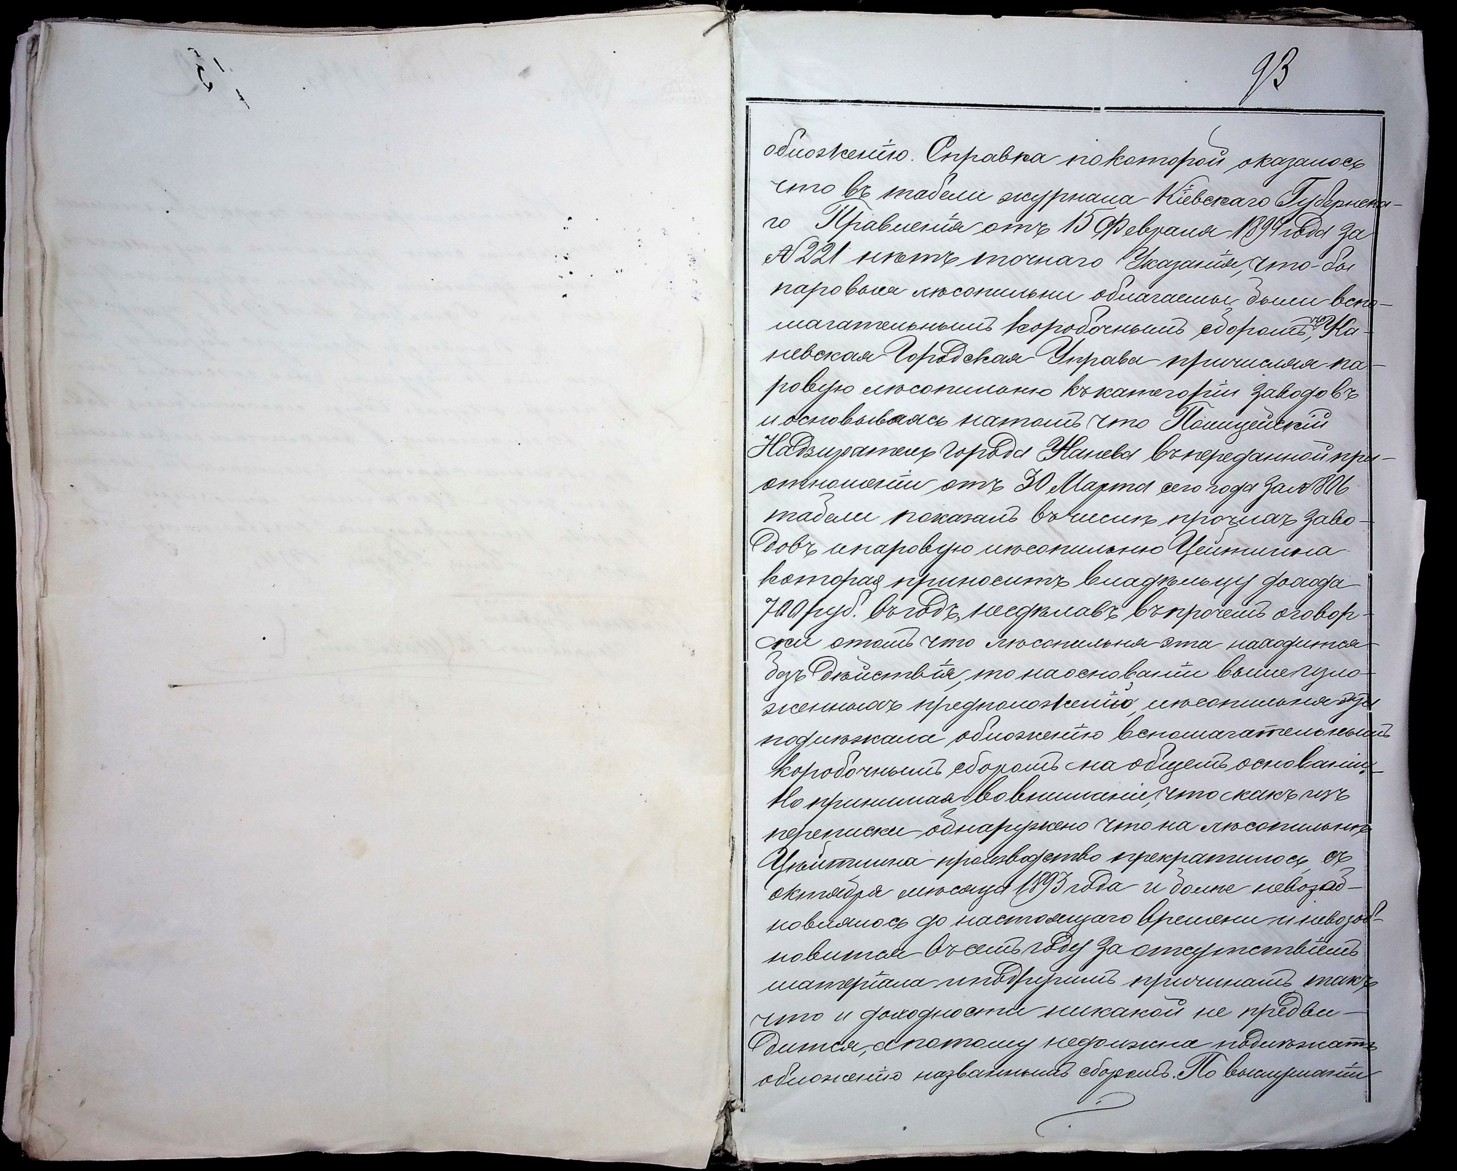 93
обложенію. Справка по которой оказалось
что въ табели журнала Кіевскаго Губернска-
го Правленія отъ 15 Февраля 1894 года за
№ 221 нѣтъ точнаго Указанія, что-бы
паровыя лѣсопильни облагаемы были вспо-
магательнымъ коробочнымъ сборомъ, но Ка-
невская Городская Управа причисляя па-
ровую лѣсопильню къ категоріи заводовъ
и основываясь на томъ что Полицейскій
Надзиратель города Канева въ переданной при
отношеніи отъ 30 Марта сего года за №
табели показалъ въ числѣ прочихъ заво-
довъ и паровую лѣсопильню Цейтлина
которая приноситъ владѣльцу дохода
700 руб. въ годъ, несдѣлавъ впрочемъ оговор-
ки о томъ что лѣсопильня эта находится
безъ дѣйствія, то на основаніи вышеизло-
женныхъ предположеній, лѣсопильня эта
подлежала обложенію вспомагательнымъ
коробочнымъ сборомъ на общемъ основаніи,
Но принимая во вниманіе, что какъ изъ
переписки обнаружено что на лѣсопильнѣ
Цейтлина производство прекратилось съ
октября мѣсяца 1893 года и болѣе невозоб-
новлялось до настоящаго времени и невозоб-
новится въ семъ году за отсутствіемъ
матеріала и по другимъ причинамъ такъ
что и доходности никакой не предви-
дится, а потому недолжна подлежать
обложенію названнымъ сборомъ. По выслушаніи